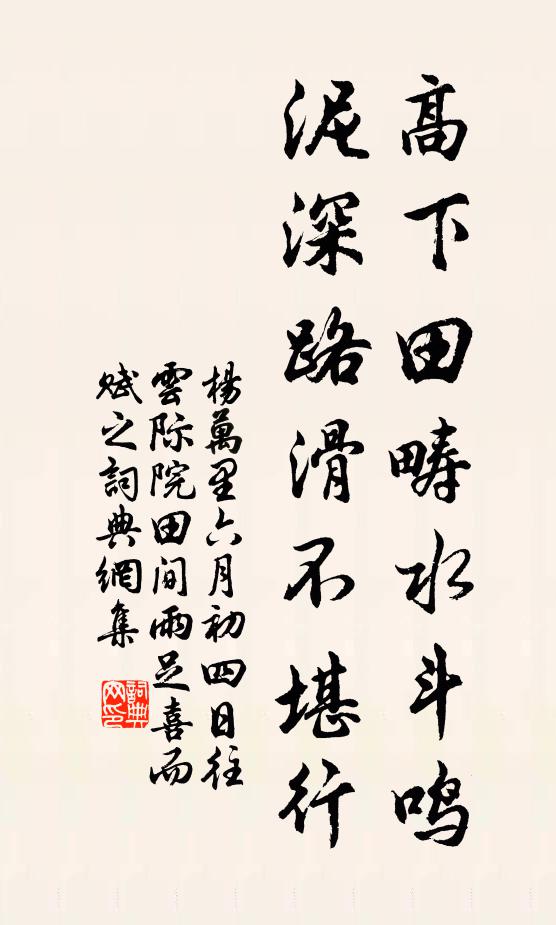 高下田畴水斗鸣
泥深路滑不堪行
楊萬里六月初四日往
雲际院田间雨足喜而
赋之詞典網集
詞典
网印